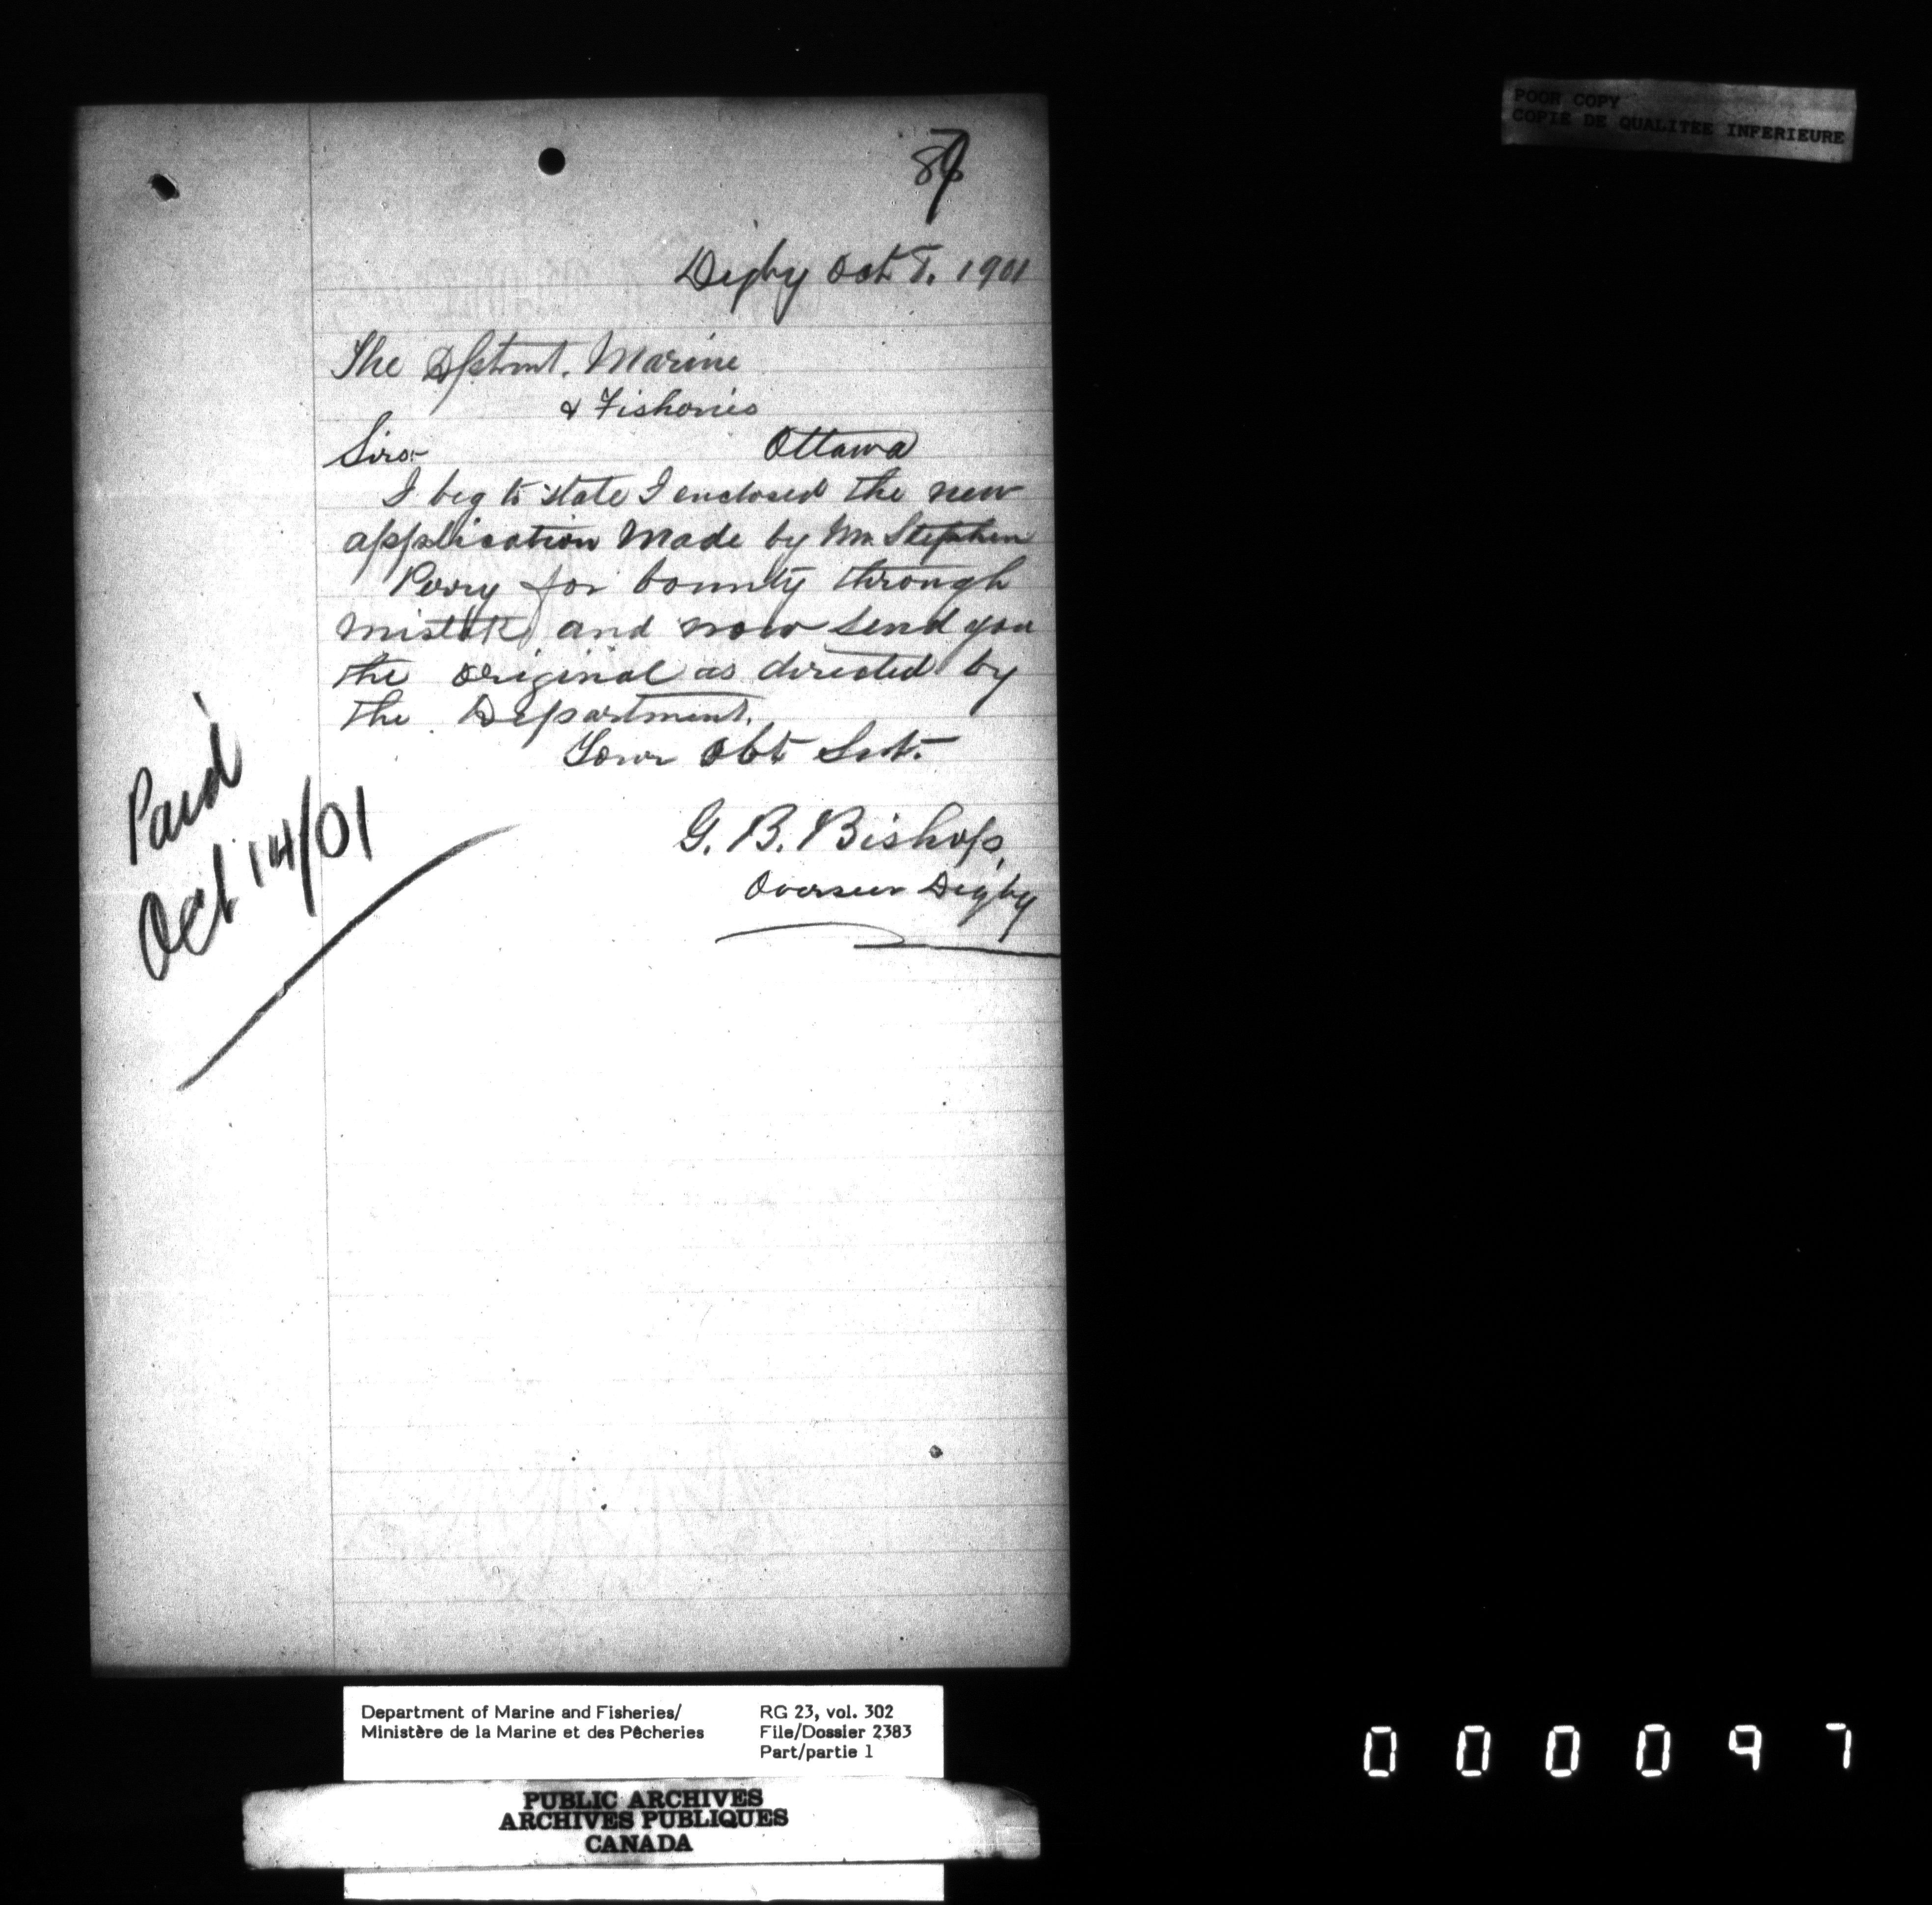 POOR COPY
COPIE DE QUALITEE INFERIEURE
Digby Oct 8. 1901
The Dptmt. Marine
& Fisheries
Sirs- Ottawa
I beg to state I enclosed the new
application Made by Mr. Stephen
Perry for bounty through
mistake and now send you
the original as directed by
the Department.
Your Obt Svt.
G. B. Bishop,
Overseer Digby
Paid
Oct 14/01
Department of Marine and Fisheries/ RG 23, vol. 302
Ministère de la Marine et des Pêcheries File/Dossier 2383
Part/partie 1
PUBLIC ARCHIVES
ARCHIVES PUBLIQUES
CANADA
000097